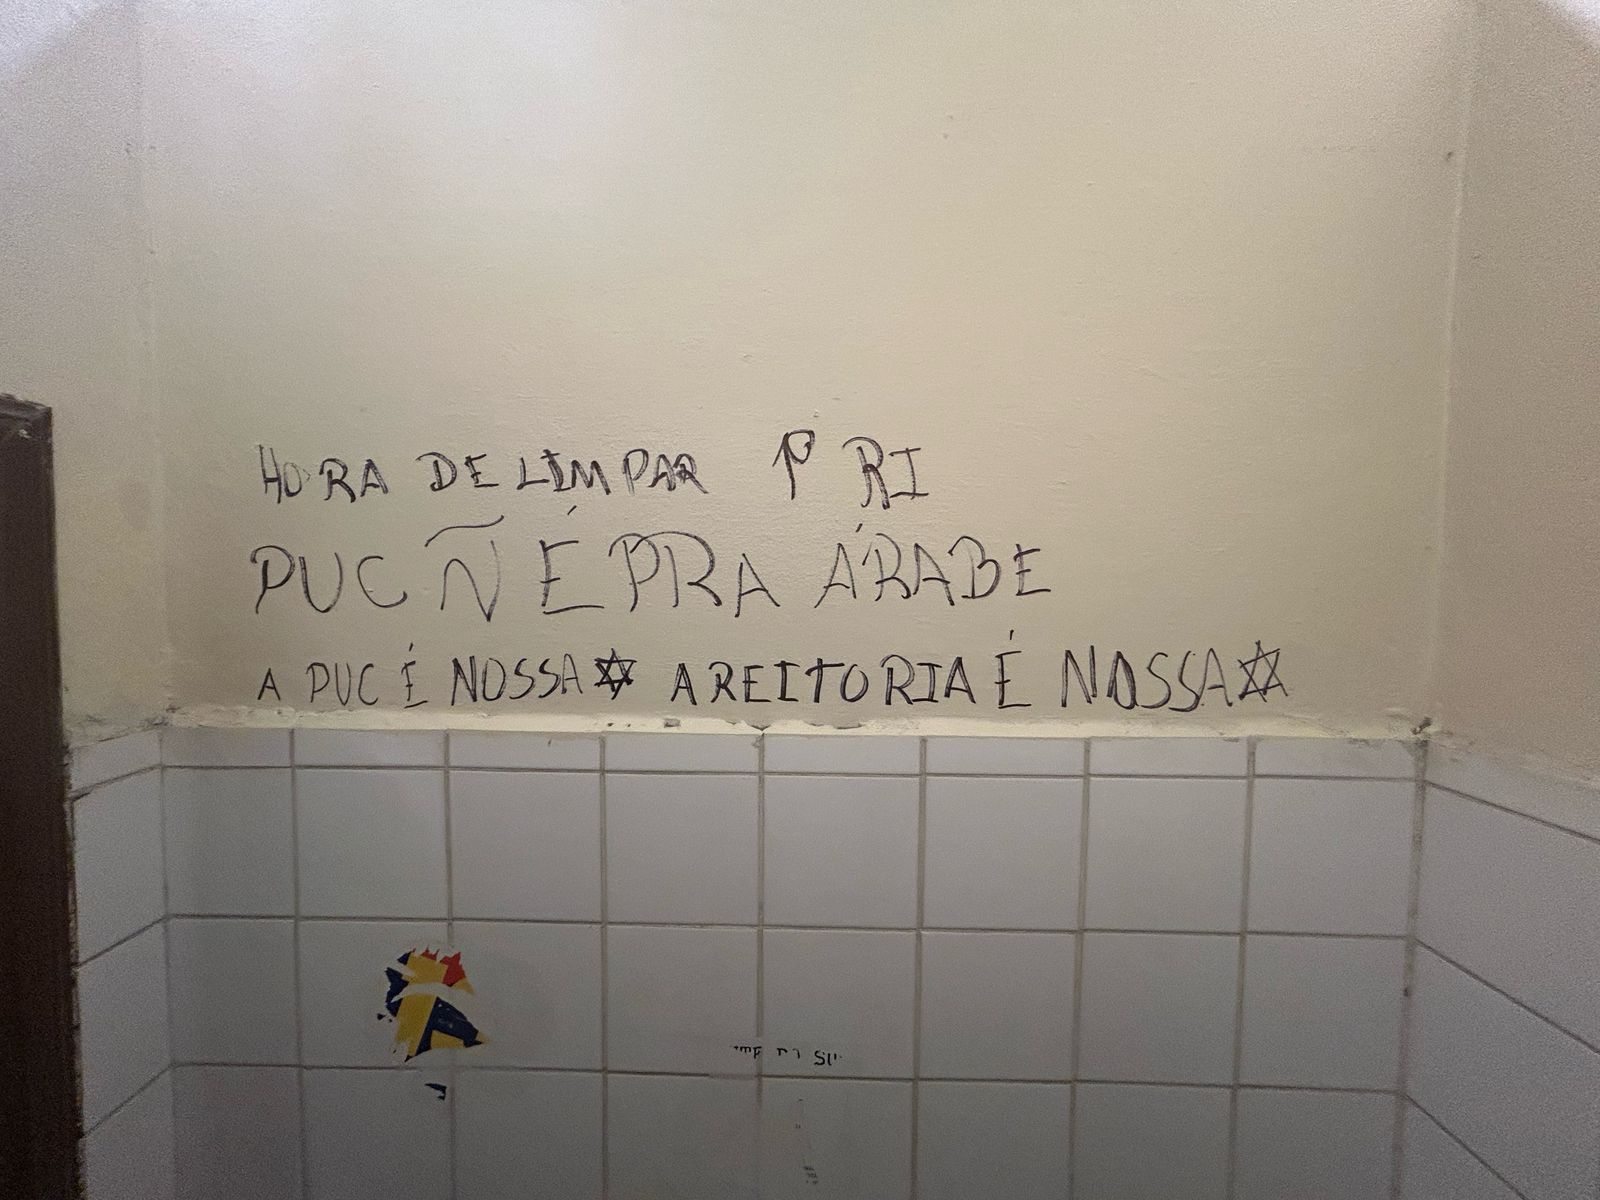 HORA DE LIMPAR P RI
PUC Ñ É PRA ÁRABE
A PUC É NOSSA✡ A REITORIA É NOSSA✡